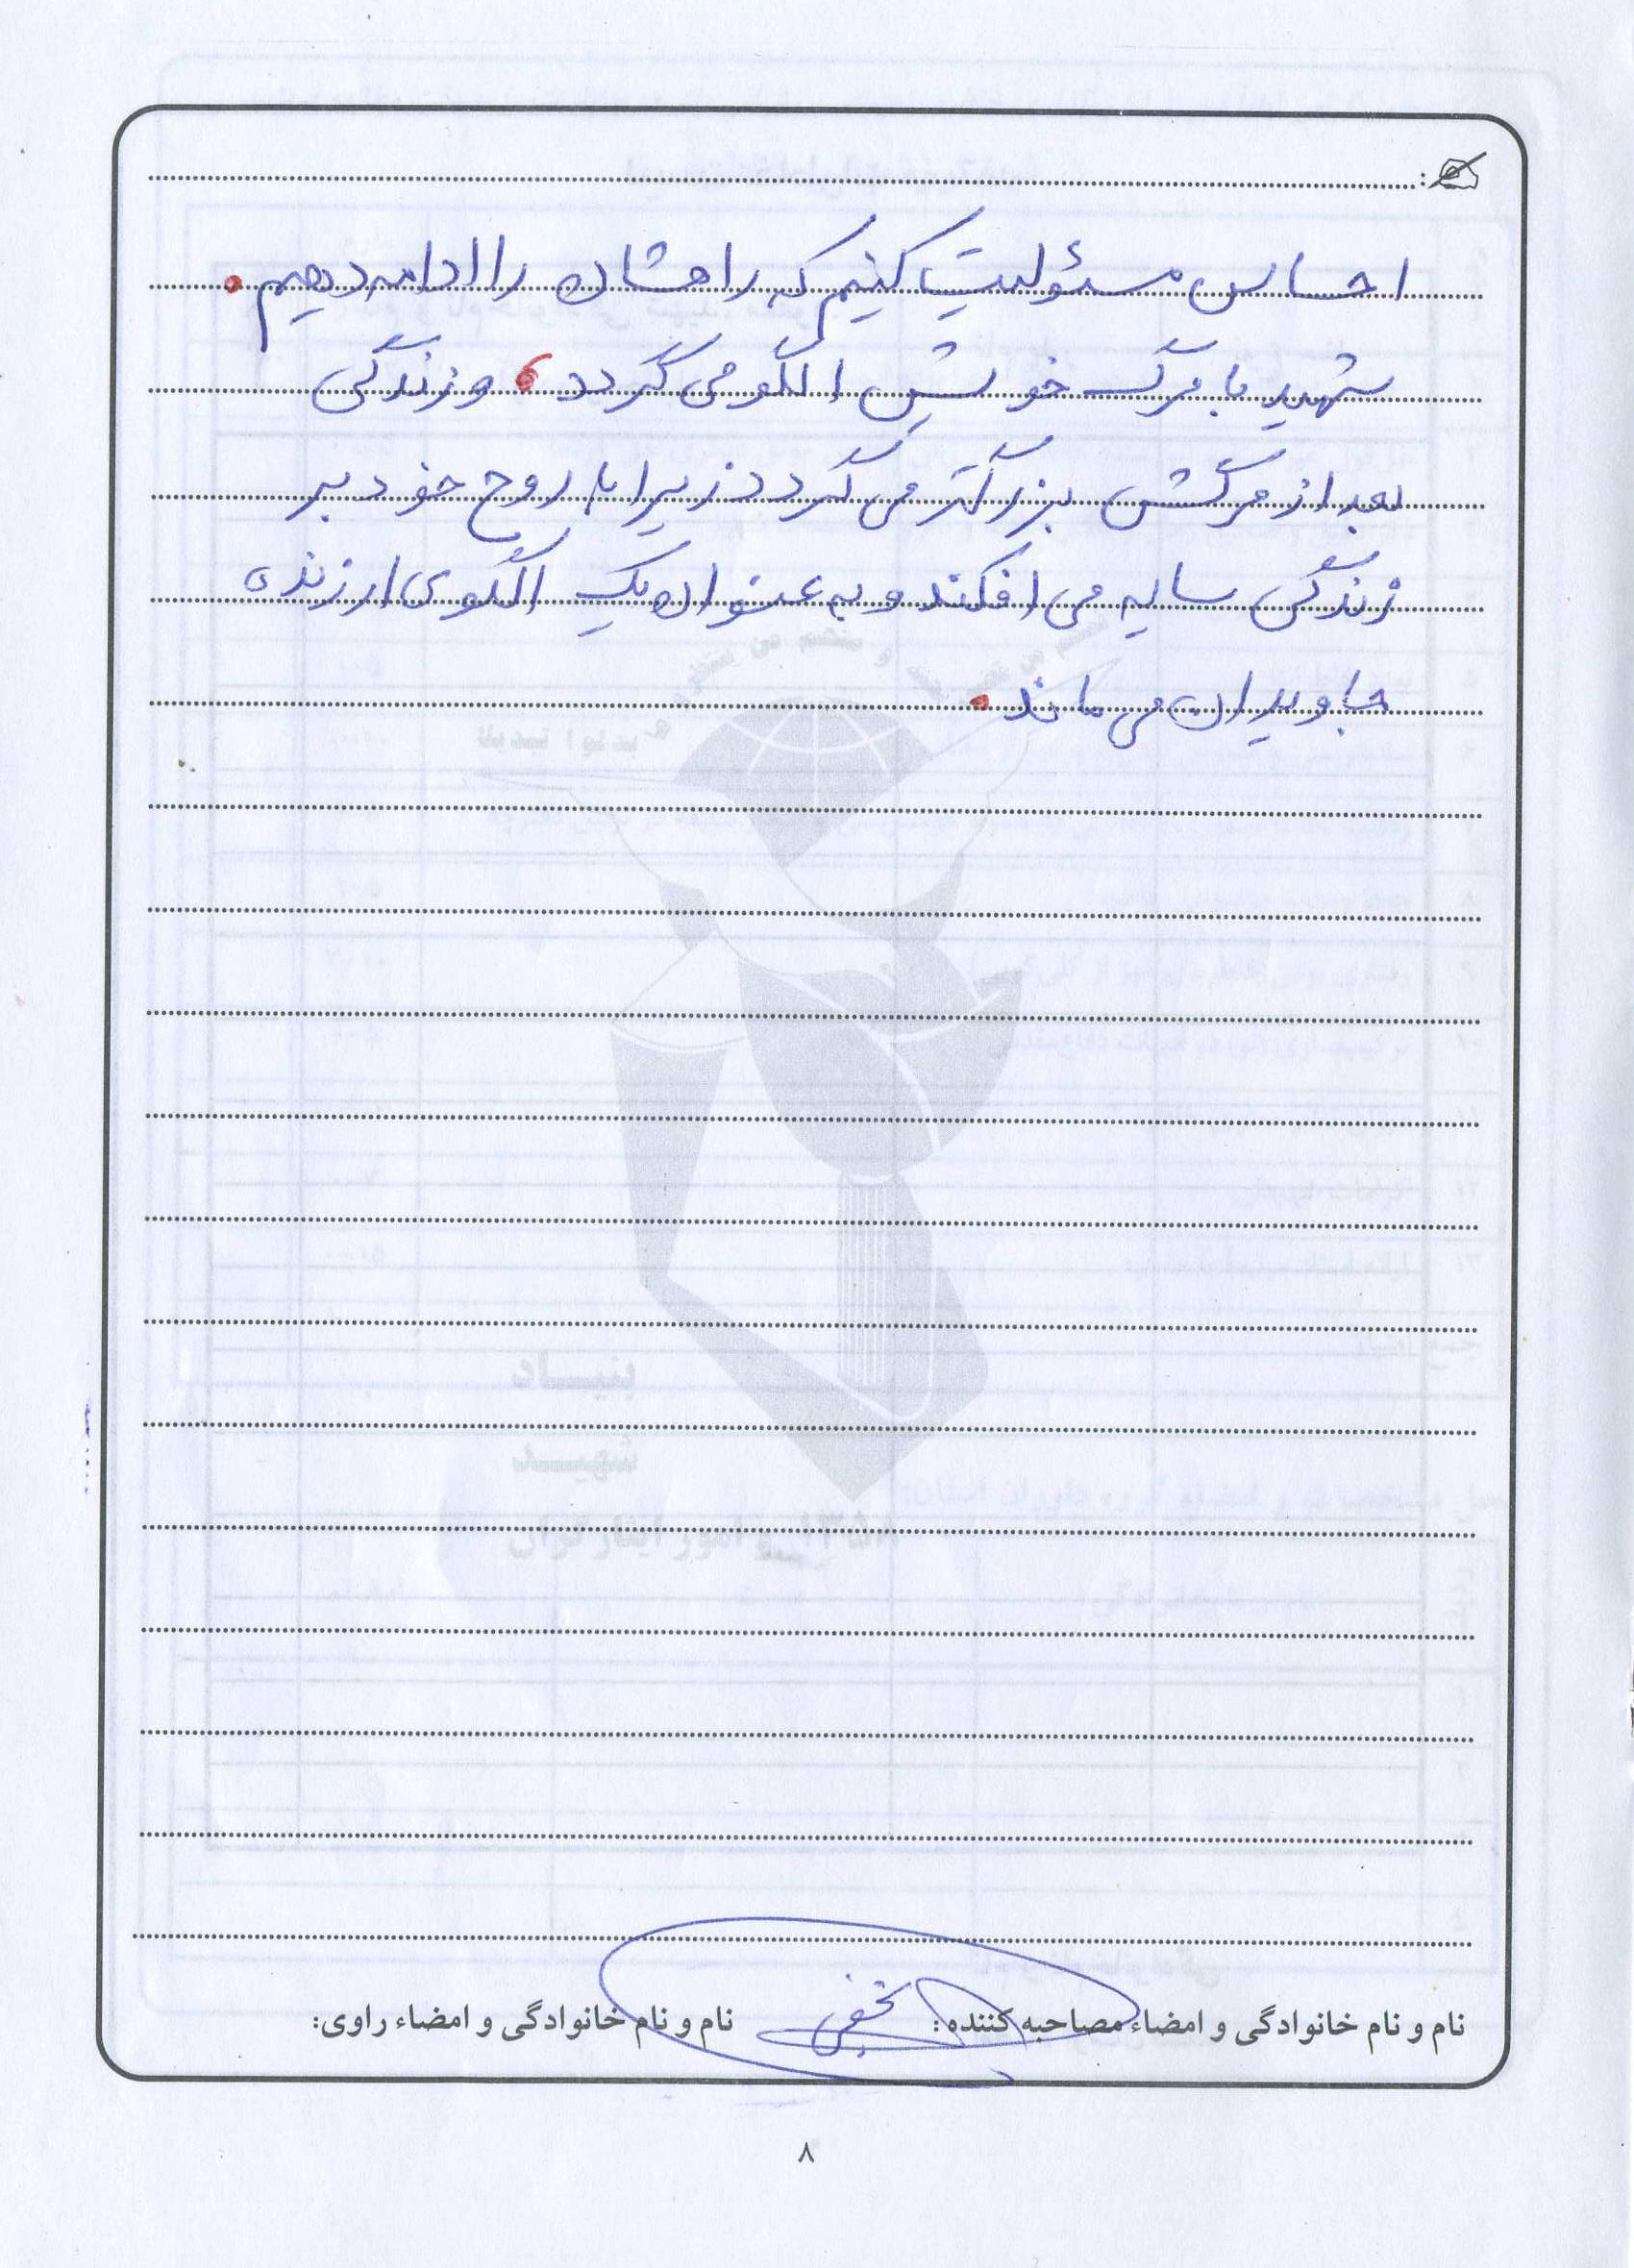 احساس مسئولیت کنیم که راهشان را ادامه دهیم.
شهید با مرگ خویش الگو می گردد، و زندگی
بعد از مرگش بزرگتر می گردد زیرا با روح خود بر
زندگی سایه می افکند و به عنوان یک الگوی ارزنده
جاویدان می ماند.
بنیاد
شهید
و امور ایثارگران
نام و نام خانوادگی و امضاء مصاحبه کننده:
نام و نام خانوادگی و امضاء راوی:
۸